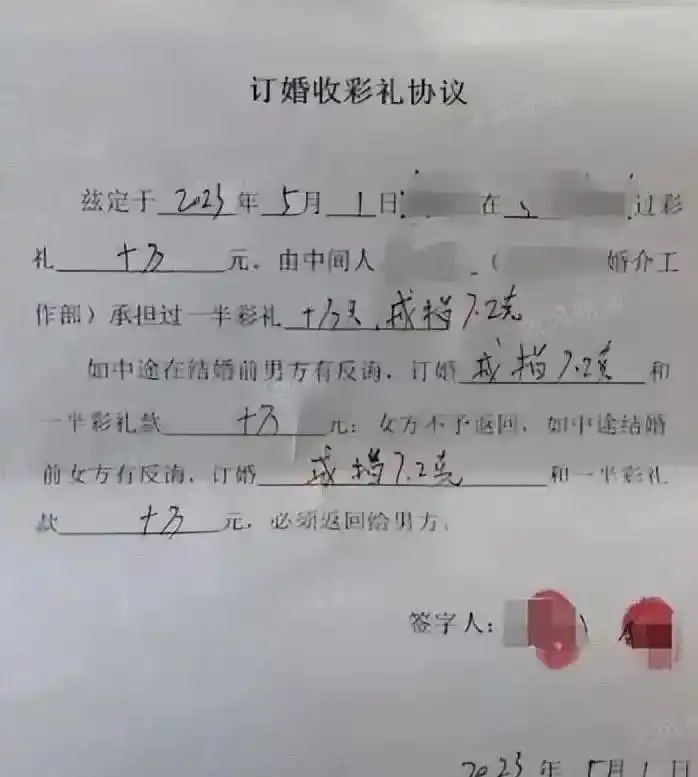 订婚收彩礼协议
兹定于 2023 年 5 月 1 日 在 过彩
礼 十万 元，由中间人 （ 婚介工
作部）承担过一半彩礼 十万元，戒指7.2克
如中途在结婚前男方有反询，订婚 戒指7.2克 和
一半彩礼款 十万 元；女方不予返回，如中途结婚
前女方有反询，订婚 戒指7.2克 和一半彩礼
款 十万 元，必须返回给男方。
签字人：
2023 年 5月 1 日